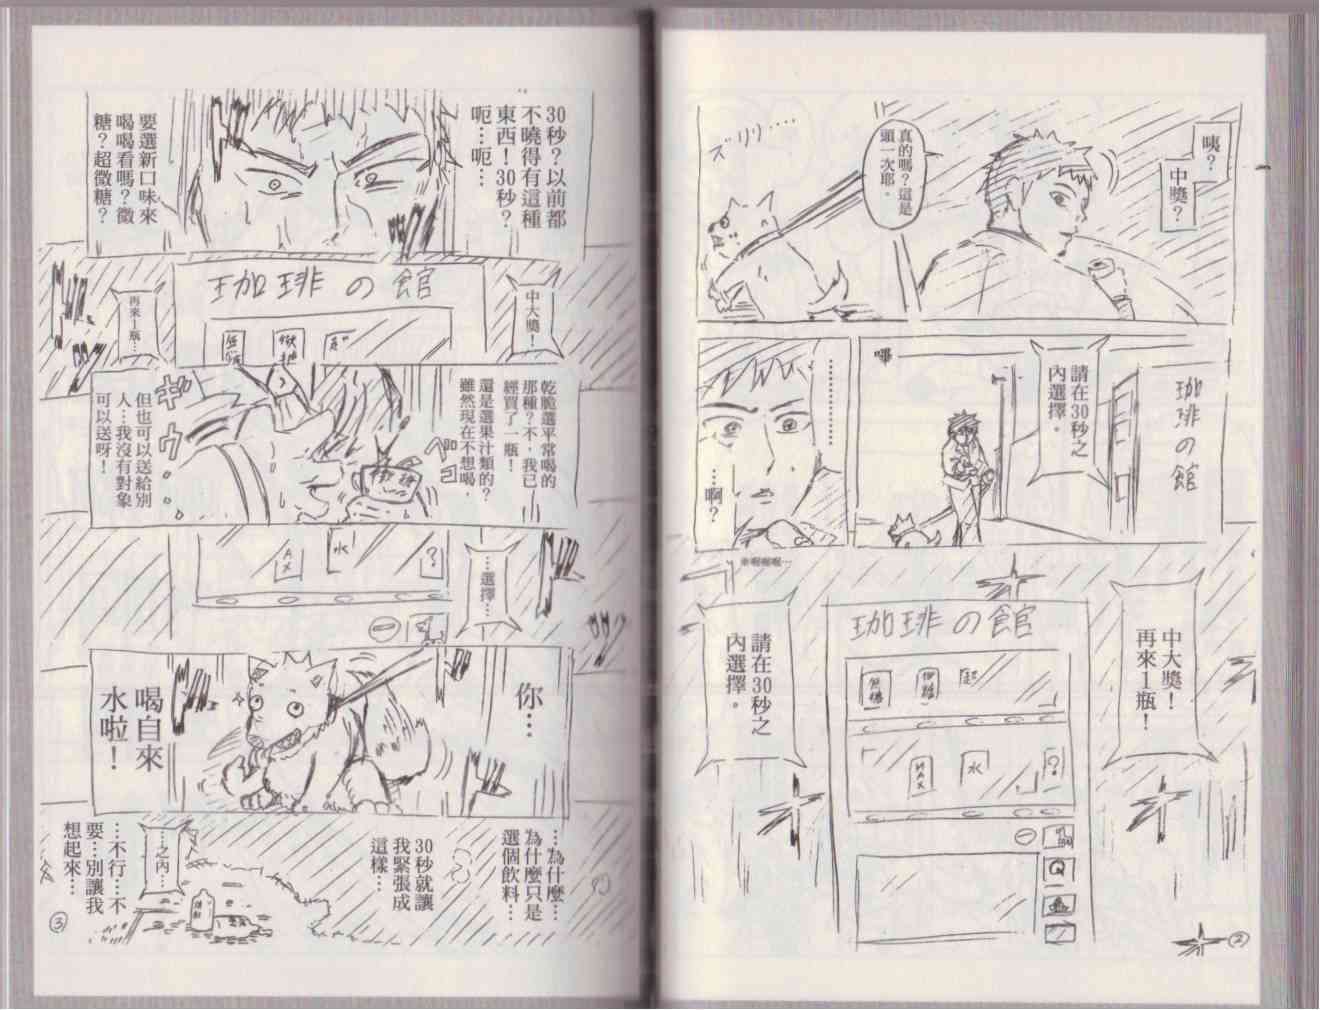 咦？
中獎？
真的嗎？這是
頭一次耶。
ズリリ……
珈琲の館
請在30秒之
內選擇。
嗶
……………
…啊？
中大獎！
再來1瓶！
珈琲の館
無糖
水
MAX
？
請在30秒之
內選擇。
②
30秒？以前都
不曉得有這種
東西！30秒？
呃…呃…
要選新口味來
喝喝看嗎？微
糖？超微糖？
中大獎！
珈琲の館
再來1瓶…
乾脆選平常喝的
那種？不，我已
經買了一瓶！
還是選果汁類的？
雖然現在不想喝，
ペコ
微糖
ギウ…
但也可以送給別
人…我沒有對象
可以送呀！
…選擇…
水
AX
？
你…
喝自來
水啦！
…為什麼…
為什麼只是
選個飲料…
30秒就讓
我緊張成
這樣…
…之內…
…不行…不
要…別讓我
想起來…
③